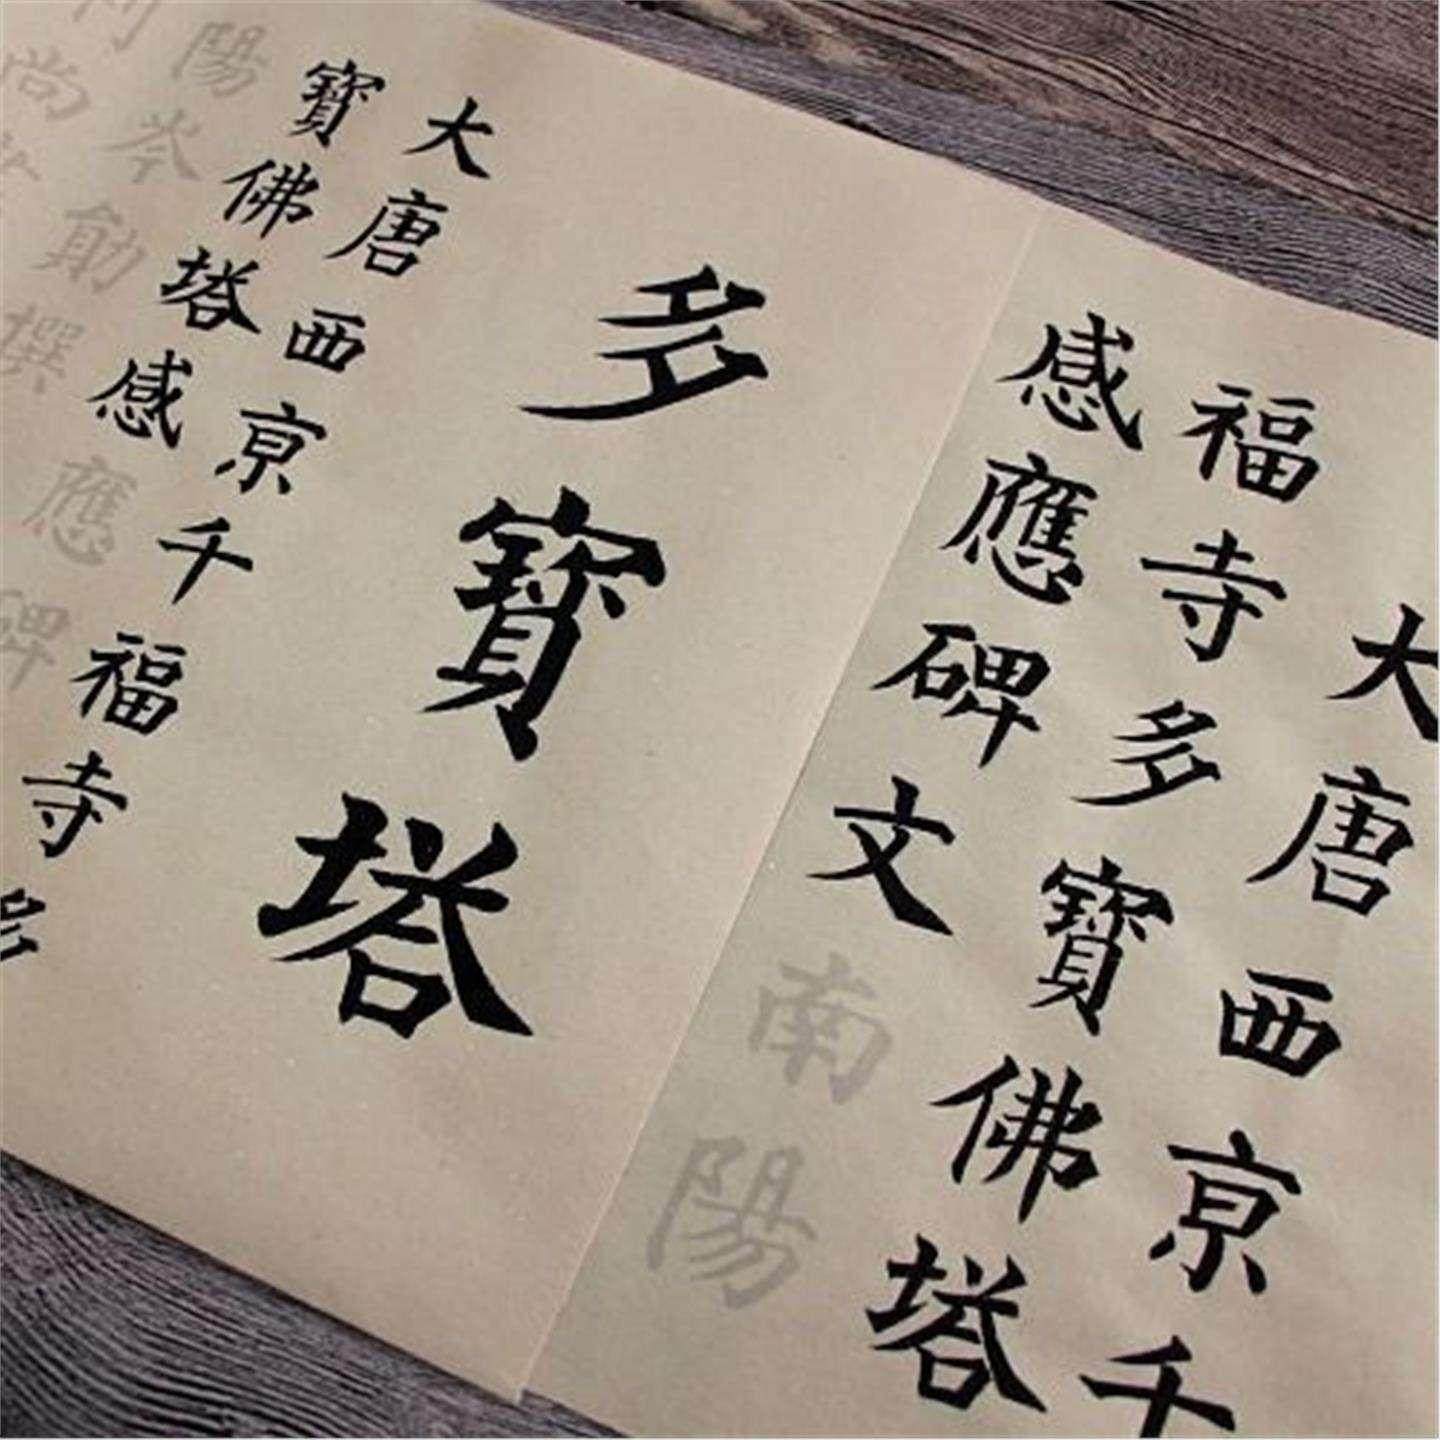 大唐西京千
福寺多寶佛塔
感應碑文南陽
多寶塔
大唐西京千福寺多
寶佛塔感應碑
陽岑勛撰
尚